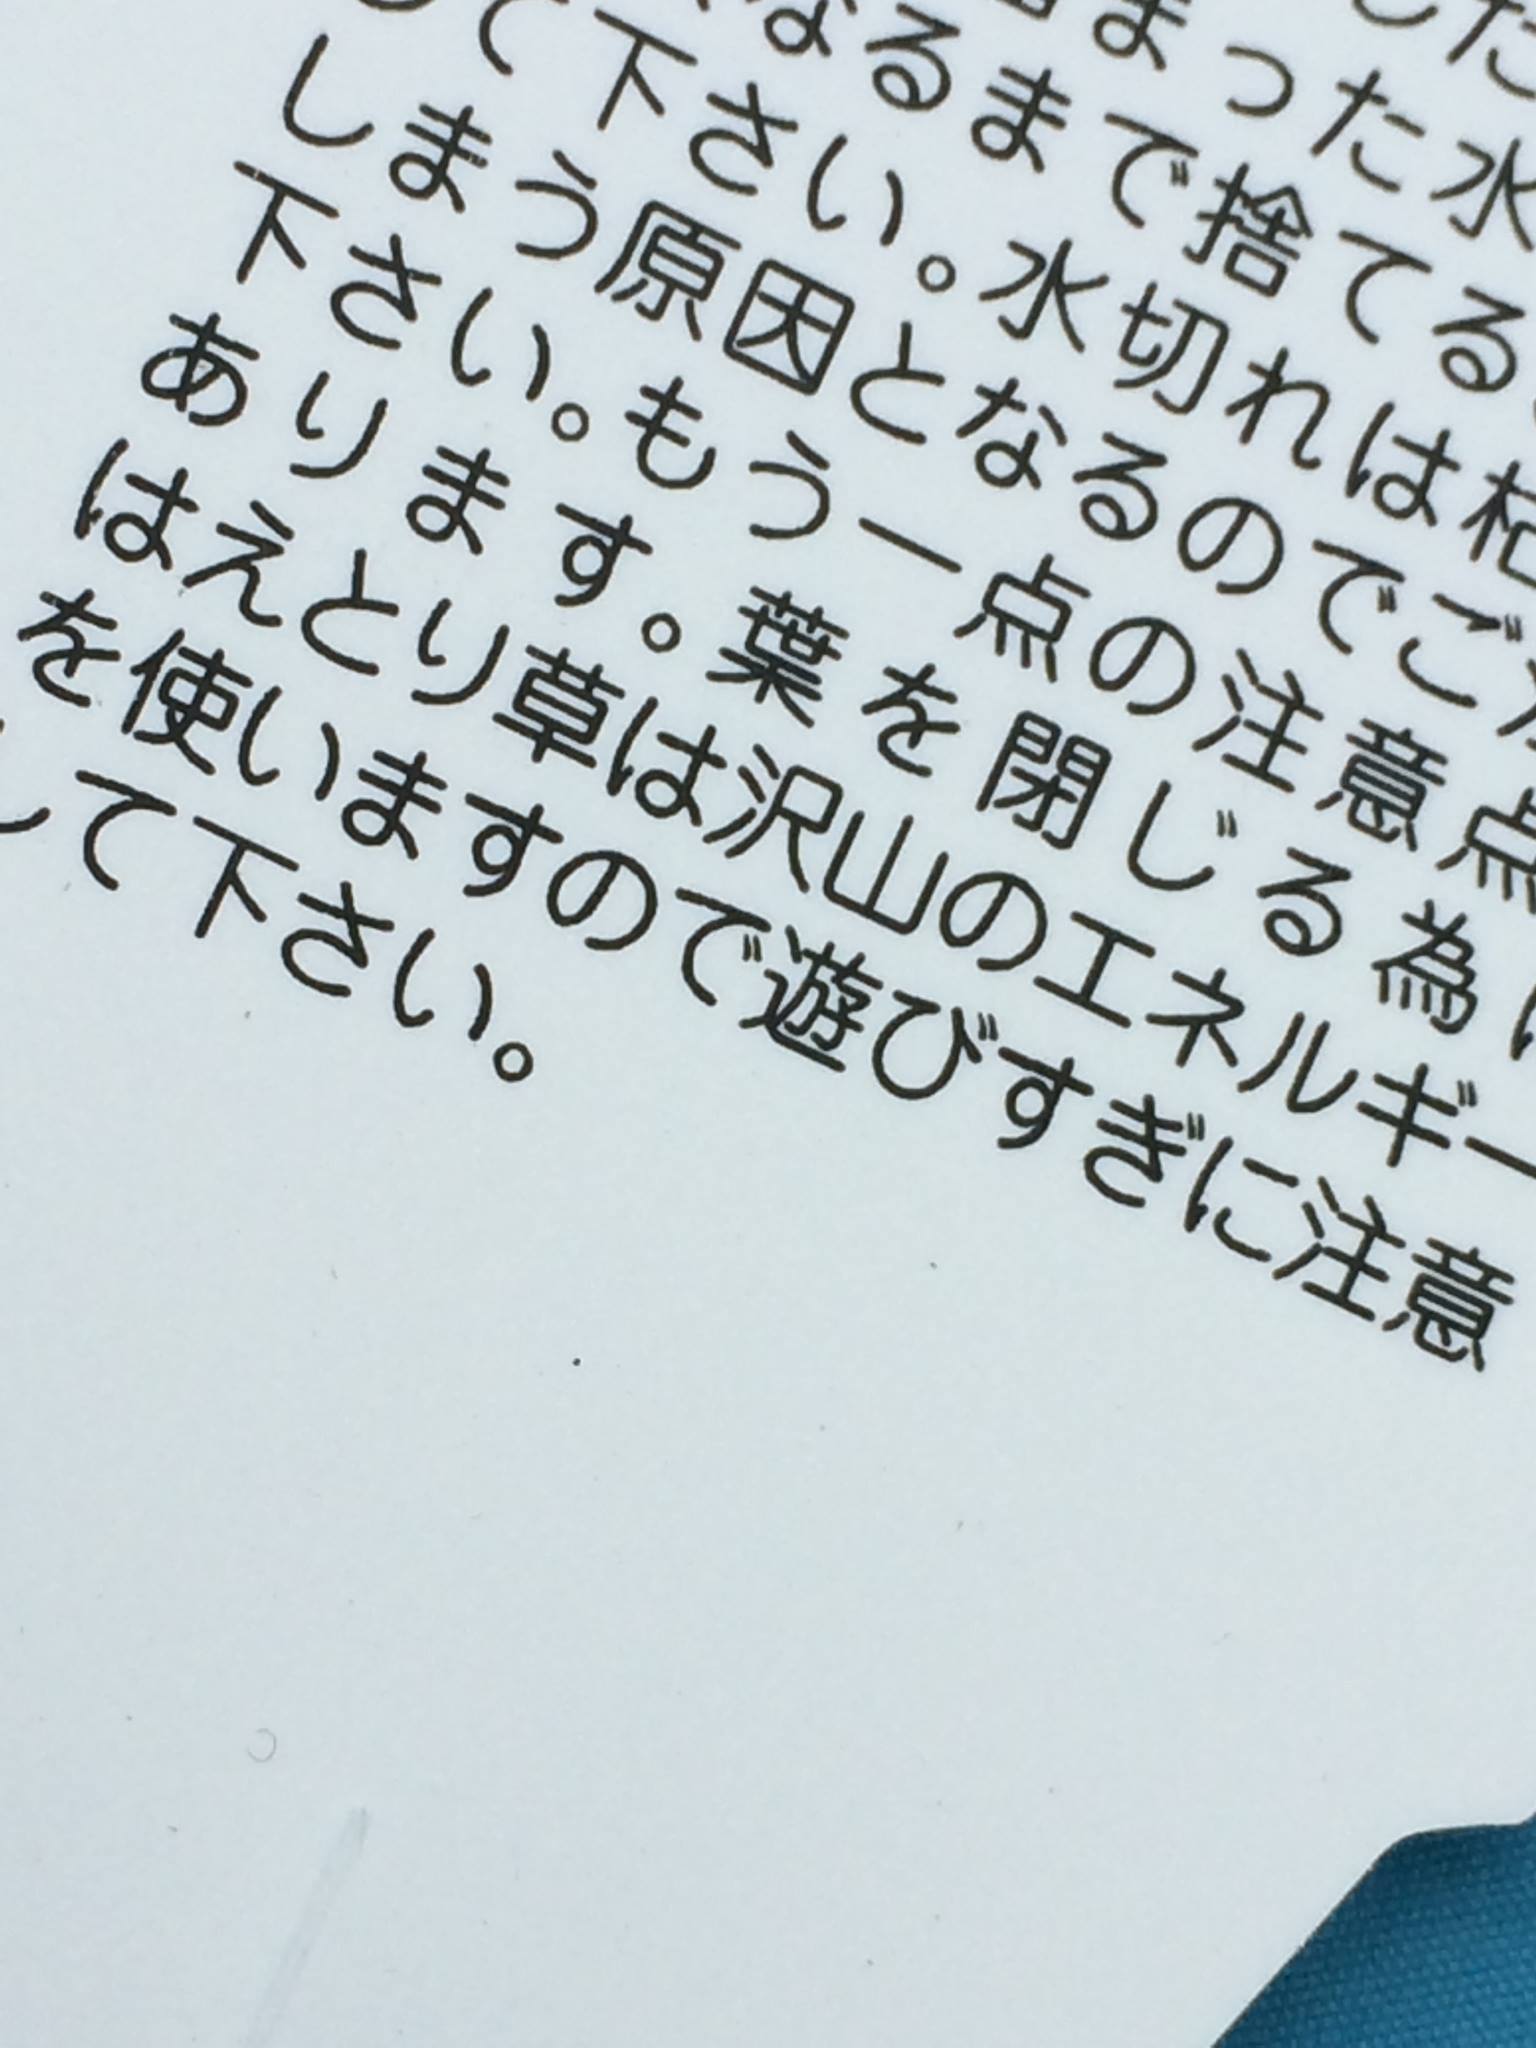 した
まった水
なるまで捨てる
て下さい。水切れは枯
しまう原因となるのでご注
下さい。もう一点の注意点
あります。葉を閉じる為に
はえとり草は沢山のエネルギー
を使いますので遊びすぎに注意
して下さい。